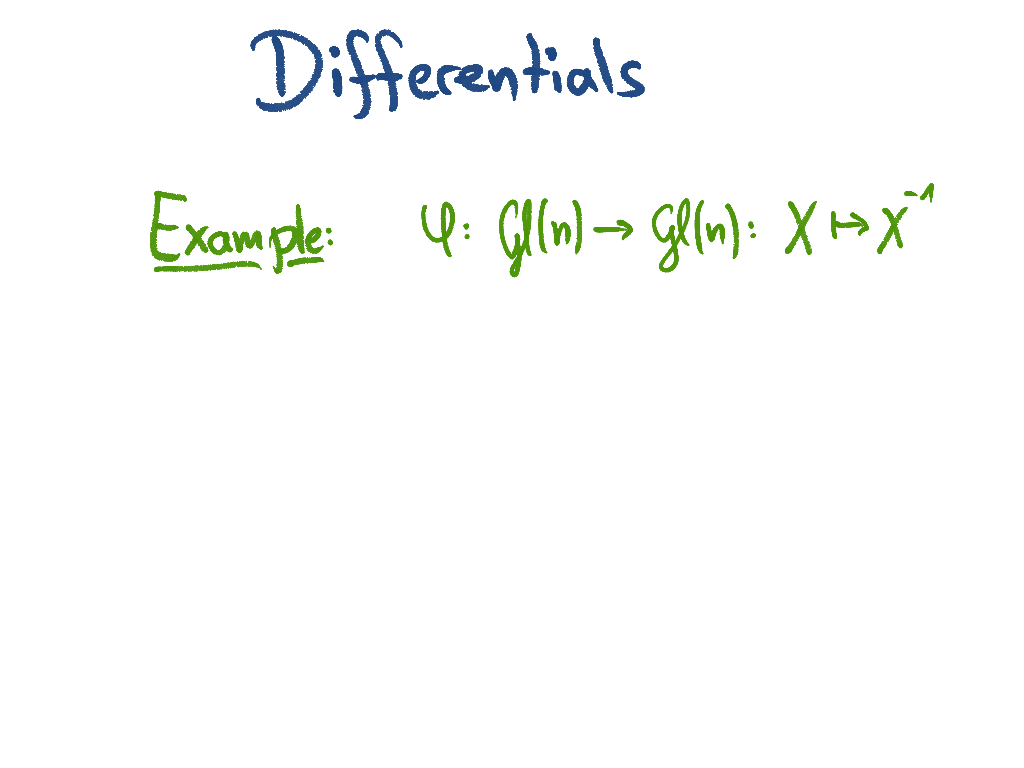 Differentials
Example: φ: Gl(n) → Gl(n): X ↦ X⁻¹